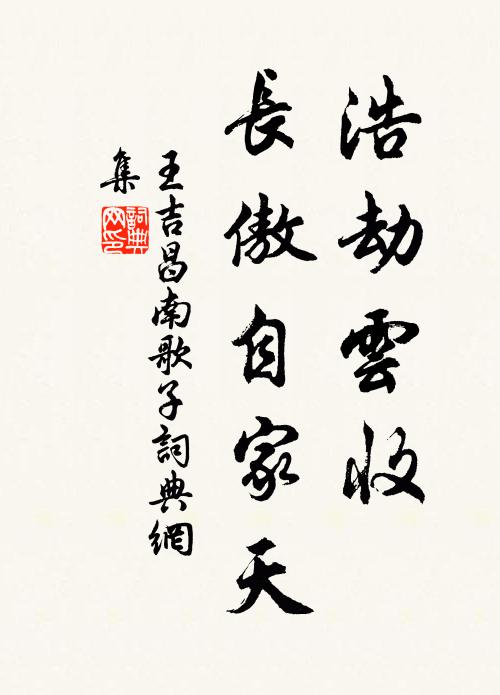 浩劫雲收
長傲自家天
王吉昌南歌子詞典網
集
詞典网印